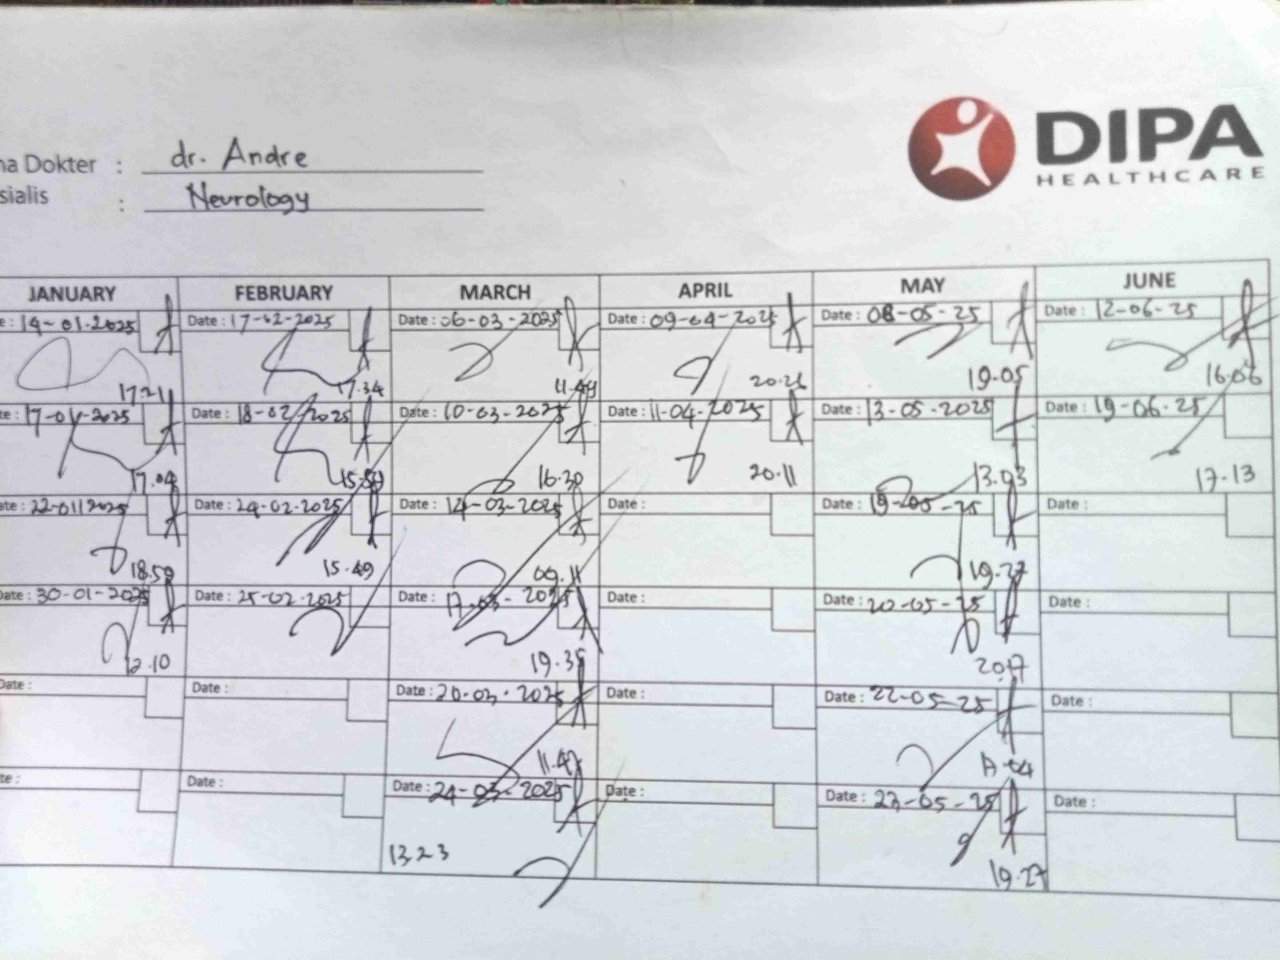 DIPA
HEALTHCARE
na Dokter : dr. Andre
sialis : Neurology
JANUARY FEBRUARY MARCH APRIL MAY JUNE
e : 14-01-2025 Date : 17-02-2025 Date : 06-03-2025 Date : 09-04-2025 Date : 08-05-25 Date : 12-06-25
17.21 17.34 11.49 20.26 19.05 16.06
te : 17-01-2025 Date : 18-02-2025 Date : 10-03-2025 Date : 11-04-2025 Date : 13-05-2025 Date : 19-06-25
17.04 15.59 16.30 20.11 13.03 17.13
ate : 22-01-2025 Date : 24-02-2025 Date : 14-03-2025 Date : Date : 19-05-25 Date :
18.50 15.49 09.11 19.27
Date : 30-01-2025 Date : 25-02-2025 Date : 17-03-2025 Date : Date : 20-05-25 Date :
12.10 19.35 20.17
Date : Date : Date : 20-03-2025 Date : Date : 22-05-25 Date :
te : Date : Date : 24-03-2025 Date : Date : 23-05-25 Date :
13.23 19.27